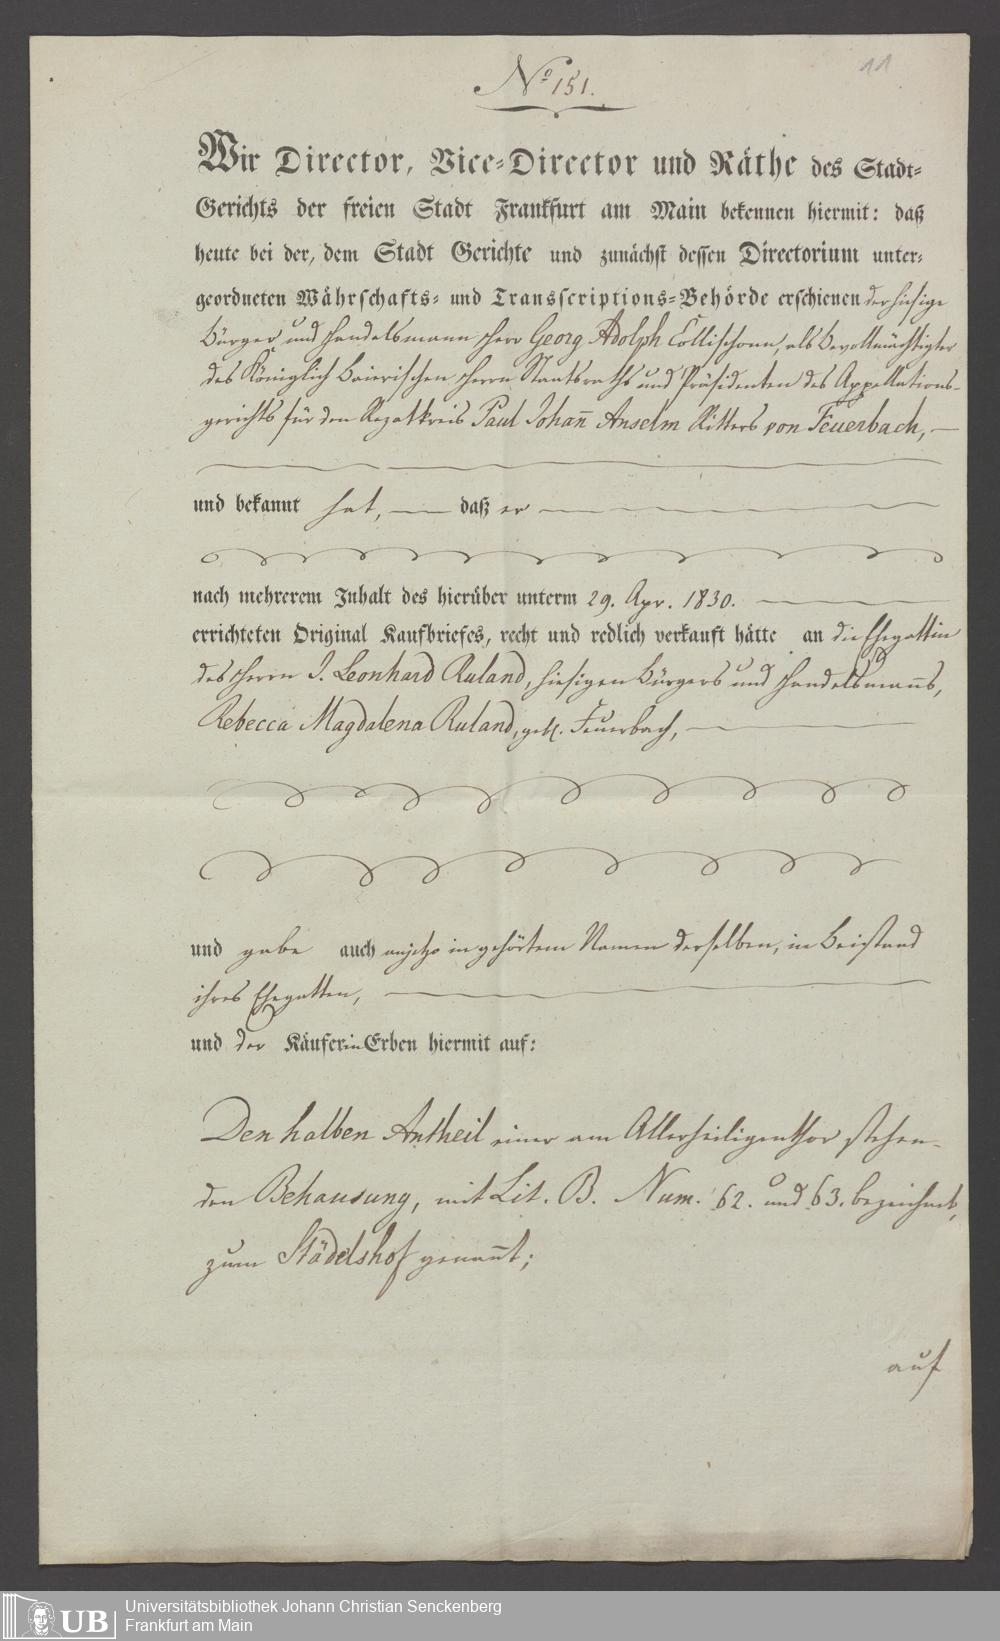 11
No 151.
Wir Director, Vice-Director und Räthe des Stadt-
Gerichts der freien Stadt Frankfurt am Main bekennen hiermit: daß
heute bei der, dem Stadt Gerichte und zunächst dessen Directorium unter-
geordneten Währschafts- und Transscriptions-Behörde erschienen der hiesige
Bürger und Handelsmann Herr Georg Adolph Collischonn, als Bevollmächtigter
des Königlich Baierischen Herrn Staatsraths und Präsidenten des Appellations-
gerichts für den Rezatkreis Paul Johan̄ Anselm Ritters von Feuerbach,
und bekannt hat, daß er
nach mehrerem Inhalt des hierüber unterm 29. Apr. 1830.
errichteten Original Kaufbriefes, recht und redlich verkauft hätte an die Ehegattin
des Herrn J. Leonhard Ruland, hiesigen Bürgers und Handelsman̄s,
Rebecca Magdalena Ruland, geb. Feuerbach,
und gabe auch anjetzo in gehörtem Namen derselben, in Beistand
ihres Ehegatten,
und der Käuferin Erben hiermit auf:
Den halben Antheil einer am Allerheiligenthor stehen-
den Behausung, mit Lit. B. Num. 62. und 63. bezeichnet,
zum Städelshof genan̄t;
auf
UB
Universitätsbibliothek Johann Christian Senckenberg
Frankfurt am Main